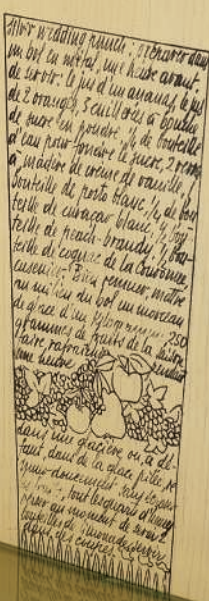 silver wedding punch : préparer dans
un bol en métal, une heure avant
de servir : le jus d'un ananas, le jus
de 2 oranges, 3 cuillerées à bouche
de sucre en poudre, 1/2 de bouteille
d'eau pour fondre le sucre, 2 verres
à madère de crème de vanille, 1
bouteille de porto blanc, 1/2 de bou
teille de curaçao blanc, 1/2 bou
teille de peach-brandy, 1/2 bou
teille de cognac de la Couronne,
Bien remuer, mettre
au milieu du bol un morceau
de glace d'un kilogramme, 250
grammes de fruits de la saison
faire rafraîchir pendant
une heure
dans une glacière ou, à dé-
faut, dans de la glace pilée, re
muer doucement
tous les quarts d'heure
au moment de servir 2
bouteilles de limonade
dans des coupes